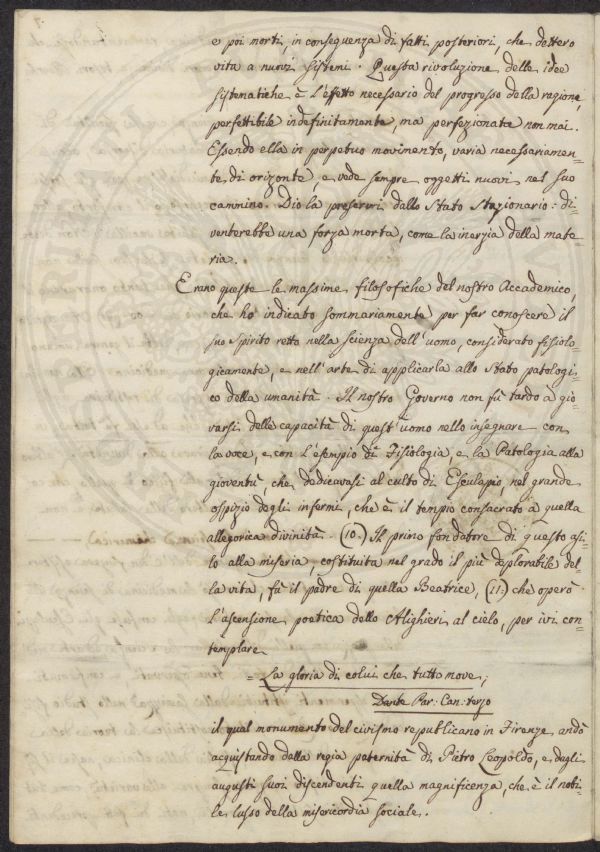 e poi morti, in conseguenza di fatti posteriori, che dettero
vita a nuovi sistemi. Questa rivoluzione delle idee
sistematiche è l'effetto necessario del progresso della ragione,
perfettibile indefinitamente, ma perfezionata non mai.
Essendo ella in perpetuo movimento, varia necessariamen-
te di orizonte, e vede sempre oggetti nuovi nel suo
cammino. Dio la preservi dallo Stato Stazionario: di-
venterebbe una forza morta, come la inerzia della mate
ria.
Erano queste le massime filosofiche del nostro Accademico,
che ho indicato sommariamente per far conoscere il
suo Spirito retto nella scienza dell'uomo, considerato fisiolo-
gicamente, e nell'arte di applicarla allo Stato patologi-
co della umanità. Il nostro Governo non fù tardo à gio-
varsi delle capacità di quest'uomo nello insegnare con
la voce, e con l'esempio di Fisiologia, e la Patologia alla
gioventù, che dedicavasi al culto di Esculapio, nel grande
ospizio degli infermi, che è il tempio consacrato a quella
allegorica divinità. (10.) Il primo fondatore di questo asi-
lo alla miseria, costituita nel grado il più deplorabile del-
la vita, fù il padre di quella Beatrice, (11.) che operò
l'ascensione poetica dello Alighieri al cielo, per ivi con-
templare
= La gloria di colui che tutto move;
Dante Par: Can: terzo
il qual monumento del civismo republicano in Firenze andò
acquistando dalla regia paternità di Pietro Leopoldo, e degli
augusti suoi discendenti quella magnificenza, che è il nobi-
le lusso della misericordia sociale.